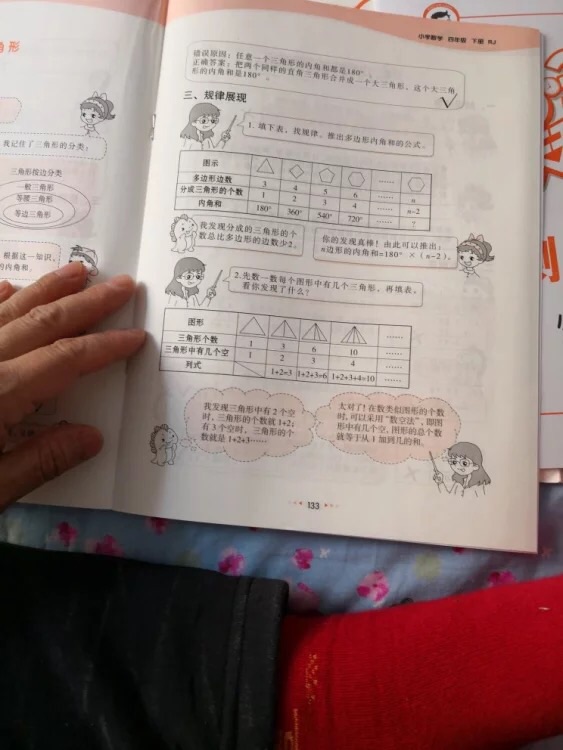 角形
我记住了三角形的分类:
三角形按边分类
一般三角形
等腰三角形
等边三角形
根据这一知识,
的内角和。
小学数学 四年级 下册 RJ
错误原因:任意一个三角形的内角和都是180°。
正确答案:把两个同样的直角三角形合并成一个大三角形,这个大三角
形的内角和是180°。
三、规律展现
1. 填下表,找规律,推出多边形内角和的公式。
图示 ……
多边形边数 3 4 5 6 …… n
分成三角形的个数 1 2 3 4 …… n-2
内角和 180° 360° 540° 720° …… ?
我发现分成的三角形的个
数总比多边形的边数少2。
你的发现真棒!由此可以推出:
n边形的内角和=180°×(n-2)。
2. 先数一数每个图形中有几个三角形,再填表。
看你发现了什么?
图形 ……
三角形个数 1 3 6 10 ……
三角形中有几个空 1 2 3 4 ……
列式 1+2=3 1+2+3=6 1+2+3+4=10 ……
我发现三角形中有2个空
时,三角形的个数就1+2;
有3个空时,三角形的个
数就是1+2+3……
太对了!在数类似图形的个数
时,可以采用“数空法”,即图
形中有几个空,图形的总个数
就等于从1加到几的和。
133